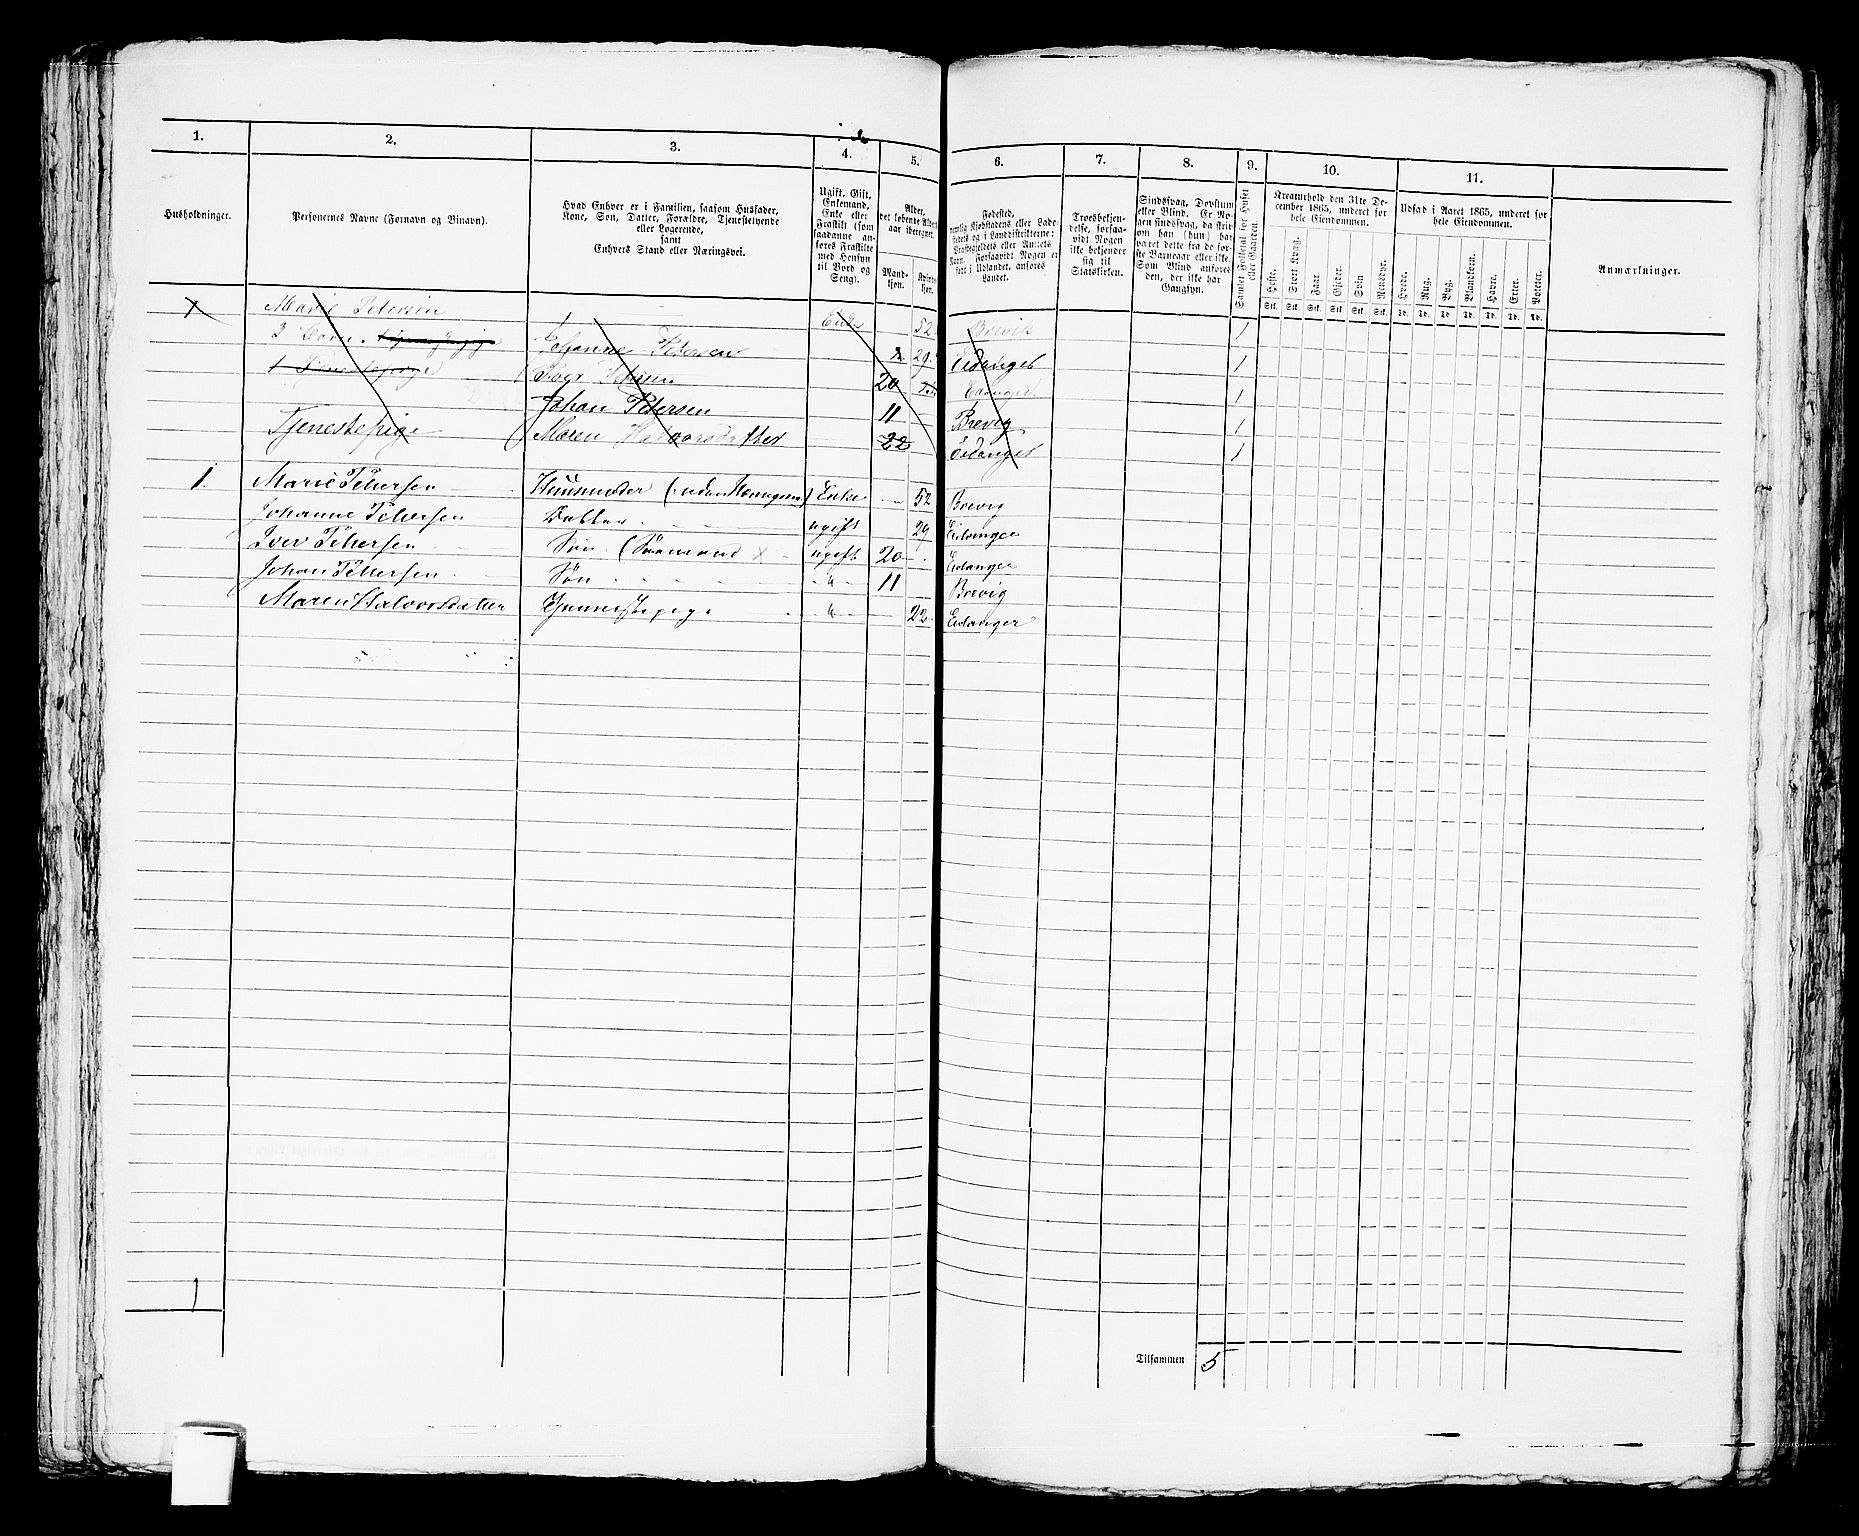 1. 2. 3. 4. 5. 6. 7. 8. 9. 10. 11.
Husholdninger.
Personernes Navne (Fornavn og Binavn).
Hvad Enhver er i Familien, saasom Husfader,
Kone, Søn, Datter, Forældre, Tjenestetyende
eller Logerende,
samt
Enhvers Stand eller Næringsvei.
Ugift, Gift,
Enkemand,
Enke eller
Fraskilt (som
saadanne an-
føres Fraskilte
med Hensyn
til Bord og
Seng).
Alder,
det løbende Alders-
aar iberegnet.
Mand-
kjøn.
Kvinde-
kjøn.
Fødested,
nemlig Kjøbstadens eller Lade-
stedets og i Landdistrikterne:
Præstegjeldets eller Amtets
Navn. Forsaavidt Nogen er
født i Udlandet, anføres
Landet.
Troesbekjen-
delse, forsaa-
vidt Nogen
ikke bekjender
sig til
Statskirken.
Sindssvag, Døvstum
eller Blind. Er No-
gen sindssvag, da skri-
ves om han (hun) har
været dette fra de før-
ste Barneaar eller ikke.
Som Blind anføres
den, der ikke har
Gangsyn.
Samlet Folketal for Huset
eller Gaarden.
Kreaturhold den 31te De-
cember 1865, underet for
hele Eiendommen.
Heste. Stort Kvæg. Faar. Gjeder. Svin. Rensdyr.
Stk. Stk. Stk. Stk. Stk. Stk.
Udsæd i Aaret 1865, underet for
hele Eiendommen.
Hvede. Rug. Byg. Blandkorn. Havre. Erter. Poteter.
Td. Td. Td. Td. Td. Td. Td.
Anmærkninger.
1 Marie Petersen Enke 52 Brevik 1
3 Børn. Johanne Petersen 29 Eidanger 1
1 Tjenestepige Iver 20 Eidanger 1
Johan Petersen 11 Brevig 1
Tjenestepige Maren 22 Eidanger 1
1 Marie Petersen Huusmoder (uden Næringsvei) Enke 52 Brevig
Johanne Petersen Datter ugift 29 Eidanger
Iver Petersen Søn (Sømand ugift 20 Eidanger
Johan Petersen Søn " 11 Brevig
Maren Halvorsdatter Tjenestepige " 22 Eidanger
1
Tilsammen 5